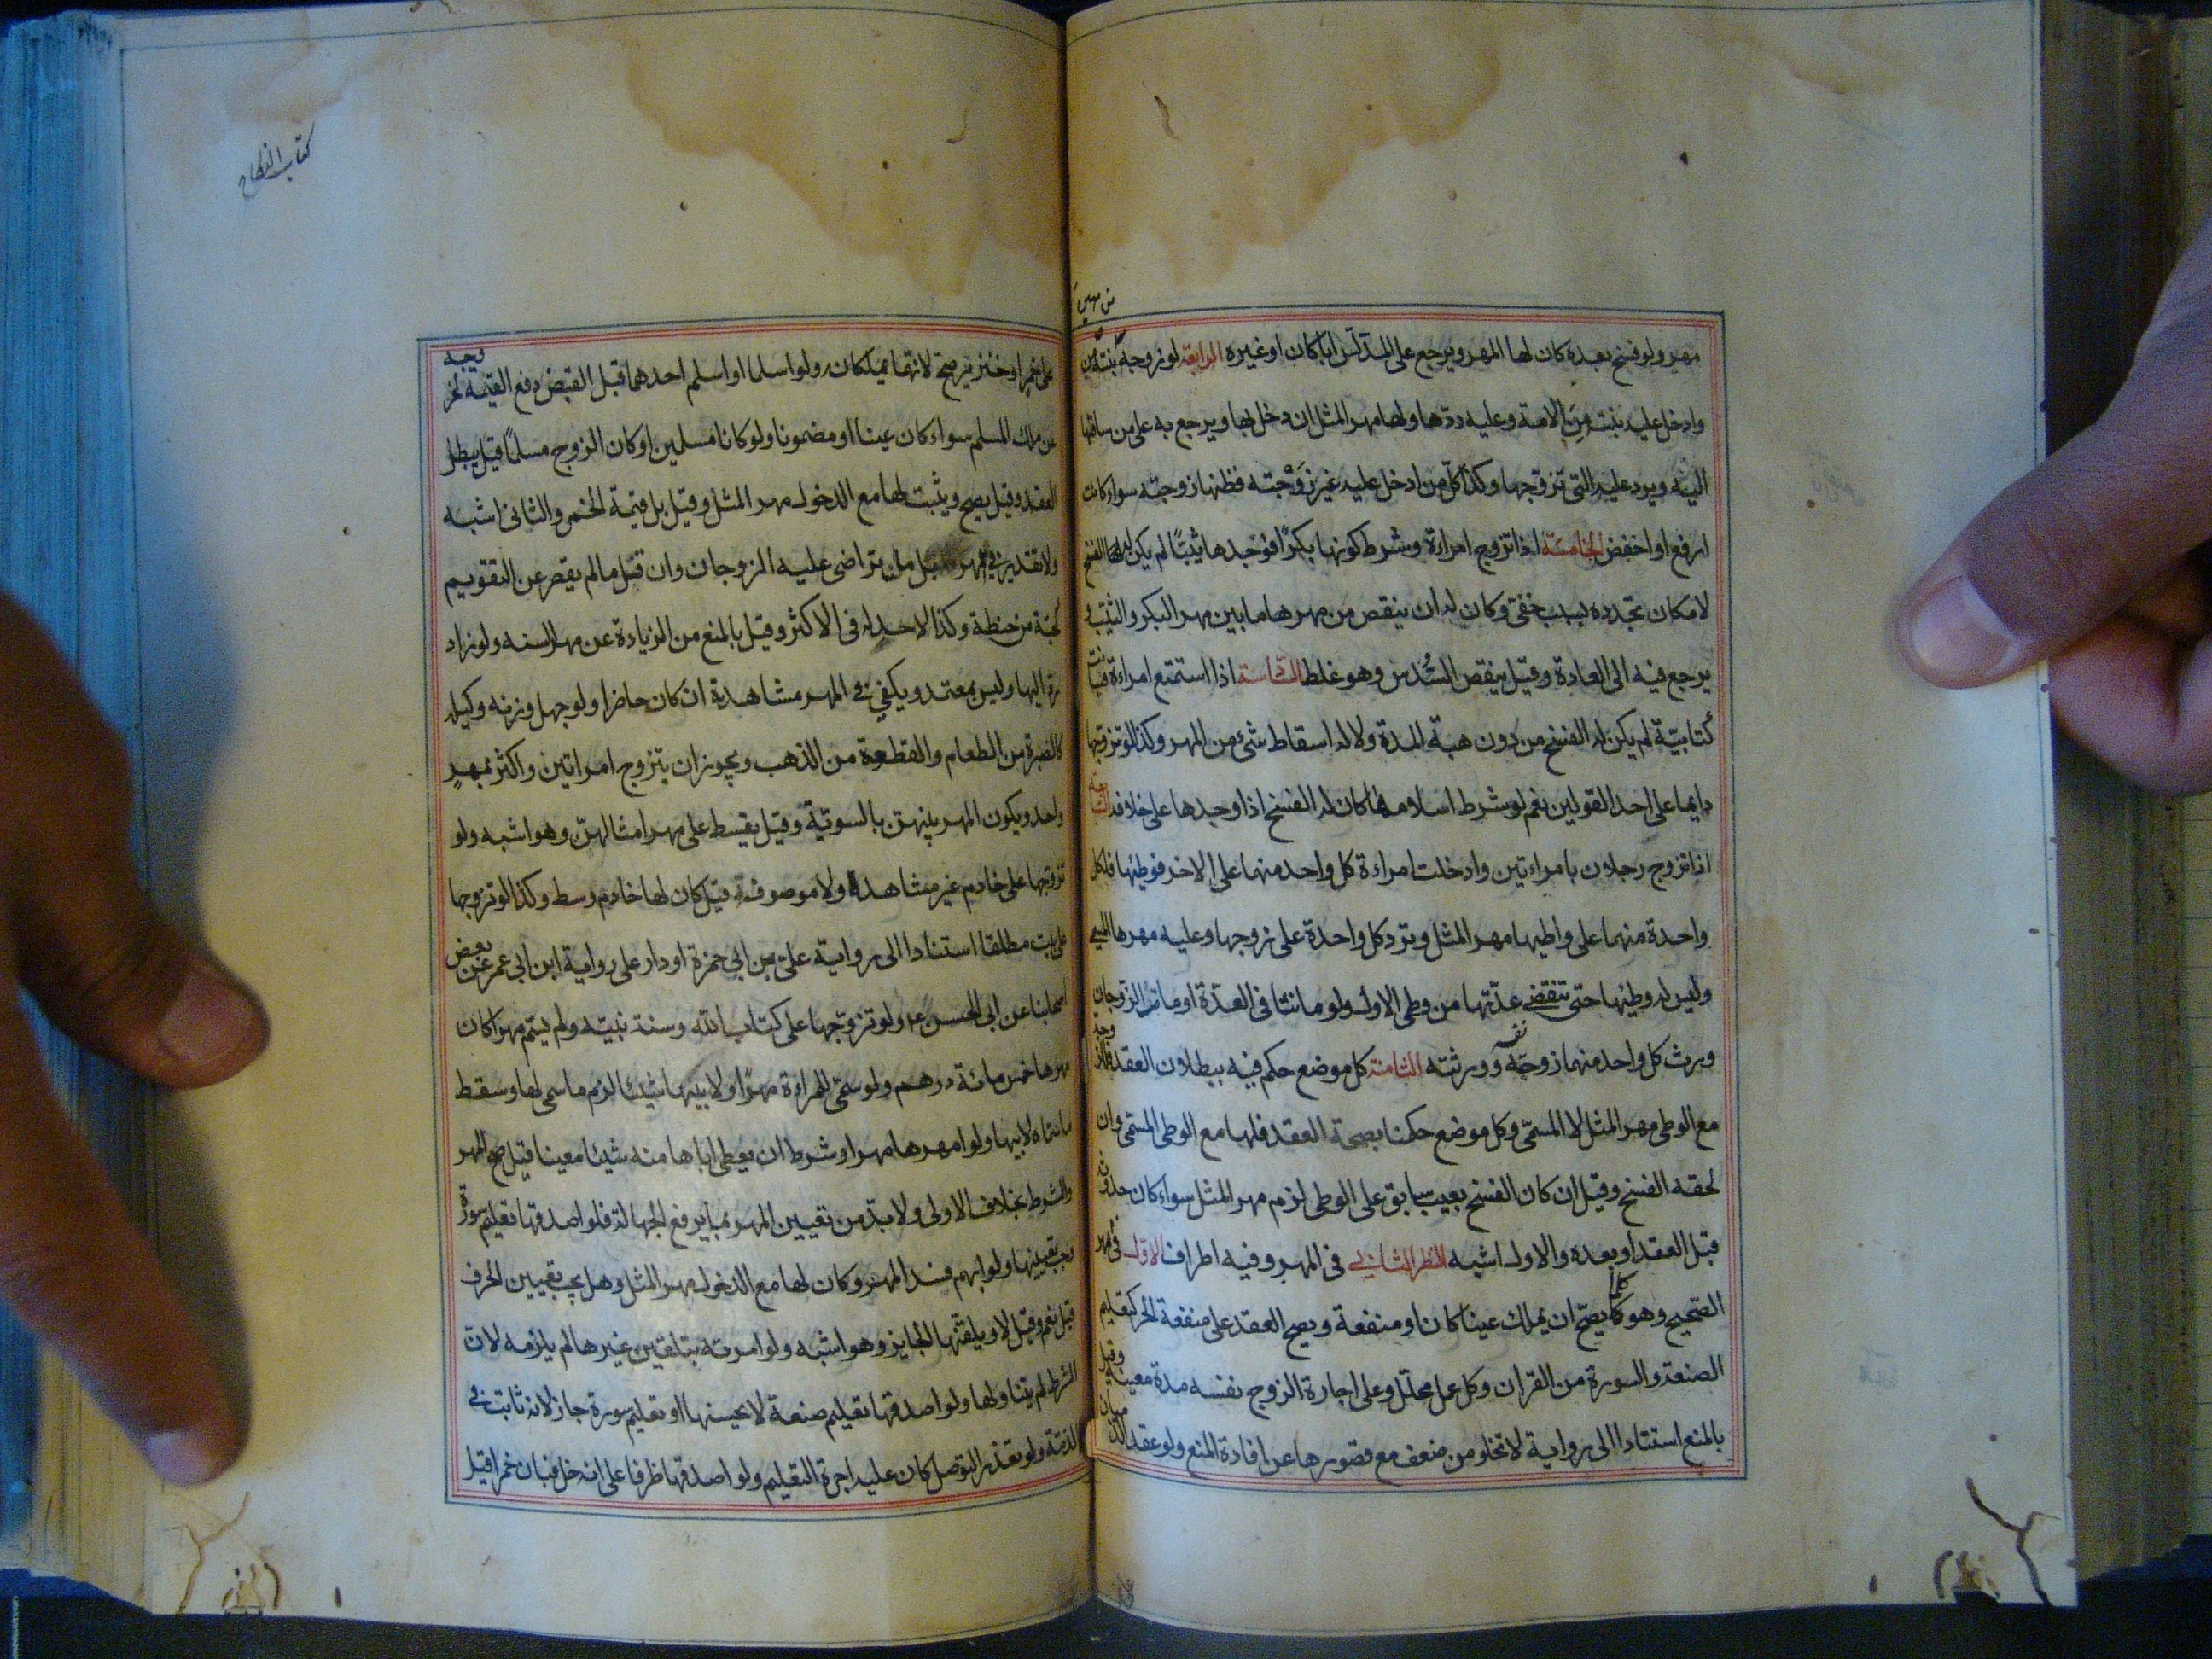 من مهيرة
مهر ولو فسخ بعده كان لها المهر ويرجع على المدلّس ابا كان او غيره الرابعة لو زوجه بنته
وادخل عليه بنته من الامة وعليه ردّها ولها مهر المثل ان دخل بها ويرجع به على من ساقها
اليه ويرد عليه التي تزوّجها وكذا كلّ من ادخل عليه غير زَوْجته فظنها زوجته سواء كانت
ارفع او اخفض الخامسة اذا تزوج امراءة وشرط كونها بكرًا فوجدها ثيّبًا لم يكن له الفسخ
لامكان تجدده بسبب خفىّ وكان له ان ينقص من مهرها ما بين مهر البكر والثيّب و
يرجع فيه الى العادة وقيل ينقص السُّدس وهو غلط السادسة اذا استمتع امراءة فبانت
كتابيّة لم يكن له الفسخ من دون هبة المدة ولا له اسقاط شئ من المهر وكذا لو تزوّجها
دايما على احد القولين نعم لو شرط اسلامها كان له الفسخ اذا وجدها على خلافه السابعة
اذا تزوج رجلان بامراءتين وادخلت امراءة كل واحد منهما على الاخر فوطئها فلكل
واحدة منهما على واطيها مهر المثل وترد كل واحدة على زوجها وعليه مهرها المسمى
وليس له وطئها حتى تنقضي عدّتها من وطى الاول ولو ماتتا في العدّة او مات الزّوجان
ورث كل واحد منهما زوجة نفسه وورثته الثامنة كل موضع حكم فيه ببطلان العقد فللزوجة
مع الوطى مهر المثل لا المسمّى وكل موضع حكمنا بصحة العقد فلها مع الوطى المسمّى وان
لحقه الفسخ وقيل ان كان الفسخ بعيب سابق على الوطى لزم مهر المثل سواء كان حدوثه
قبل العقد او بعده والاول اشبه النظر الثاني في المهر وفيه اطراف الاول في المهر
الصّحيح وهو كلّما يصحّ ان يملك عينا كان او منفعة ويصح العقد على منفعة الحر كتعليم
الصنعة والسورة من القران وكل عمل محلّل وعلى اجارة الزوج نفسه مدة معينة وقيل
بالمنع استنادا الى رواية لا تخلو من ضعف مع قصورها عن افادة المنع ولو عقد الذميان
كتاب النكاح
على خمر او خنزير صح لانهما يملكان ولو اسلما او اسلم احدهما قبل القبض دفع القيمة لخروجه
عن ملك المسلم سواء كان عينا او مضمونا ولو كانا مسلمين او كان الزوج مسلمًا قيل يبطل
العقد وقيل يصح ويثبت لها مع الدخول مهر المثل وقيل بل قيمة الخمر والثاني اشبه
ولا تقدير في المهر بل ما تراضى عليه الزوجان وان قل ما لم يقصر عن التقويم
كحبّة من حنطة وكذا لا حد له في الاكثر وقيل بالمنع من الزيادة عن مهر السنه ولو زاد
ردّ اليها وليس بمعتمد ويكفي في المهر مشاهدة ان كان حاضرا ولو جهل وزنه وكيله
كالصبرة من الطعام والقطعة من الذهب ويجوز ان يتزوج امراتين واكثر بمهرٍ
واحد ويكون المهر بينهنّ بالسويّة وقيل يقسط على مهر امثالهنّ وهو اشبه ولو
تزوّجها على خادم غير مشاهدة ولا موصوفة قيل كان لها خادم وسط وكذا لو تزوجها
على بيت مطلقا استنادا الى رواية علىّ بن ابي حمزة او دار على رواية ابن ابي عمير عن بعض
اصحابنا عن ابي الحسن ع ولو تزوّجها على كتاب الله وسنة نبيّه ولم يسّم مهرا كان
مهرها خمس مائة درهم ولو سمّى للمراءة مهرًا ولابيها شيئًا لزم ما سمى لها وسقط
ما سمّاه لابيها ولو امهرها مهرا وشرط ان يعطى اباها منه شيئا معينا قيل صح المهر
والشرط بخلاف الاولى ولا بدّ من تعيين المهر بما يرفع الجهالة فلو اصدقها تعليم سورة
وجب تعيينها ولو ابهم فسد المهر وكان لها مع الدخول مهر المثل وهل يجب تعيين الحرف
قيل نعم وقيل لا ويلقّنها الجايز وهو اشبه ولو امرته بتلقين غيرها لم يلزمه لان
الشرط لم يتناولها ولو اصدقها تعليم صنعة لا يحسنها او تعليم سورة جاز لانه ثابت في
الذمّة ولو تعذر التوصل كان عليه اجرة التعليم ولو اصدقها ظرفا على انه خل فبان خمرا قيل